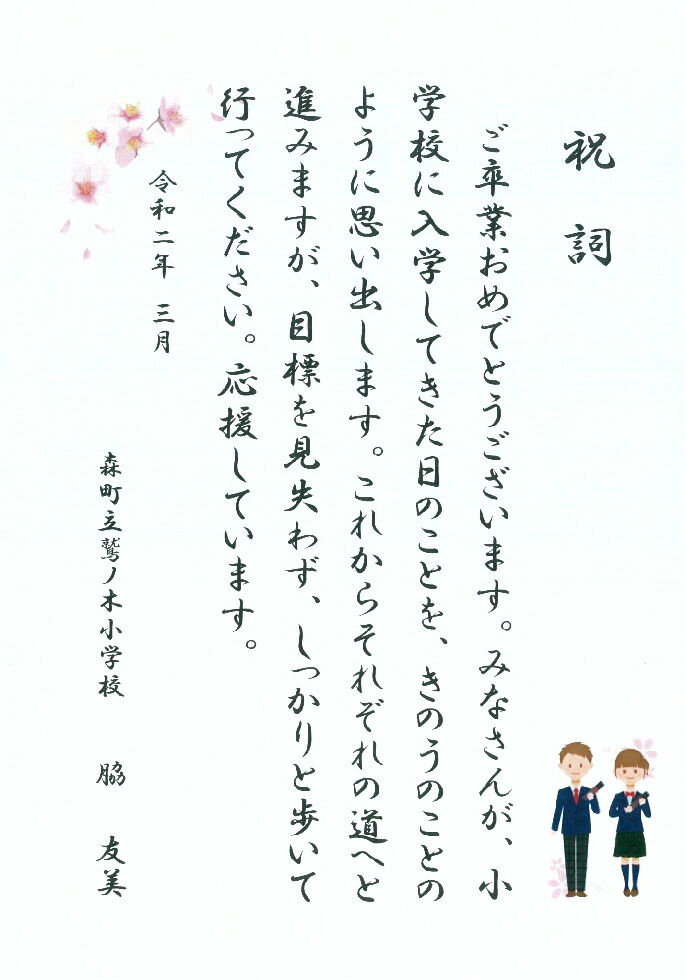 祝詞
ご卒業おめでとうございます。みなさんが、小
学校に入学してきた日のことを、きのうのことの
ように思い出します。これからそれぞれの道へと
進みますが、目標を見失わず、しっかりと歩いて
行ってください。応援しています。
令和二年 三月
森町立鷲ノ木小学校 脇 友美